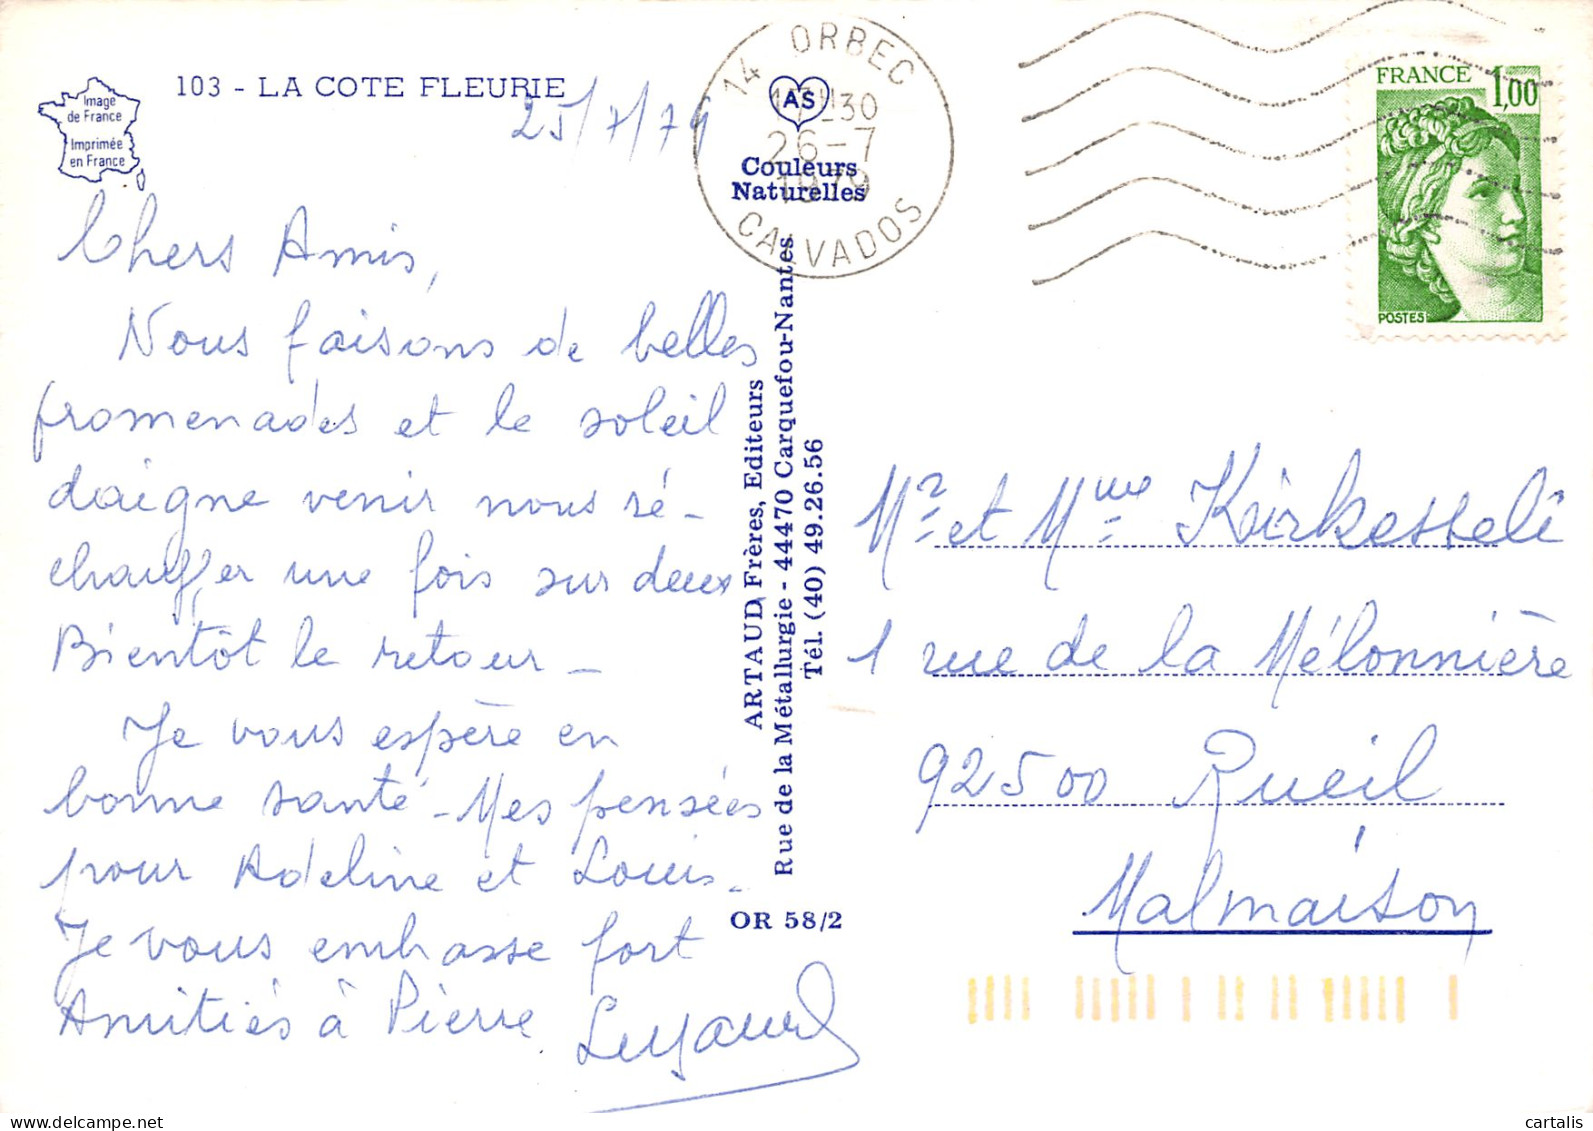 Image
de France
Imprimée
en France
103 - LA COTE FLEURIE
25/7/79
14 ORBEC
17H30
26-7
1979
CALVADOS
AS
Couleurs
Naturelles
FRANCE 1,00
POSTES
Chers Amis,
Nous faisons de belles
promenades et le soleil
daigne venir nous ré-
chauffer une fois sur deux
Bientôt le retour -
Je vous espère en
bonne santé - Mes pensées
pour Adeline et Louis -
Je vous embrasse fort
Amitiés à Pierre
ARTAUD Frères, Editeurs
Rue de la Métallurgie - 44470 Carquefou-Nantes
Tél. (40) 49.26.56
OR 58/2
Mr et Mme Kirkesseli
1 rue de la Mélonnière
92500 Rueil
Malmaison
cartalis
delcampe.net